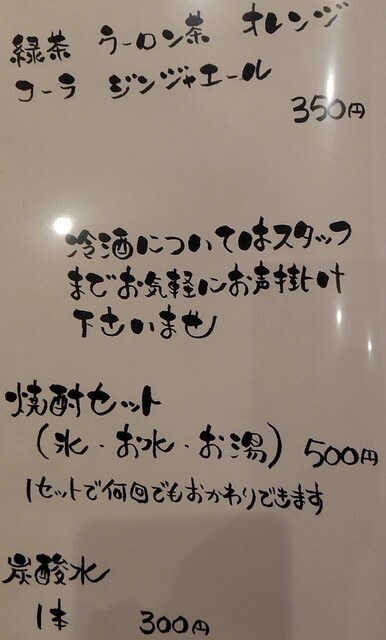 緑茶 ウーロン茶 オレンジ
コーラ ジンジャエール
350円
冷酒についてはスタッフ
までお気軽にお声掛け
下さいませ
焼酎セット
(氷・お水・お湯) 500円
1セットで何回でもおかわりできます
炭酸水
1本 300円